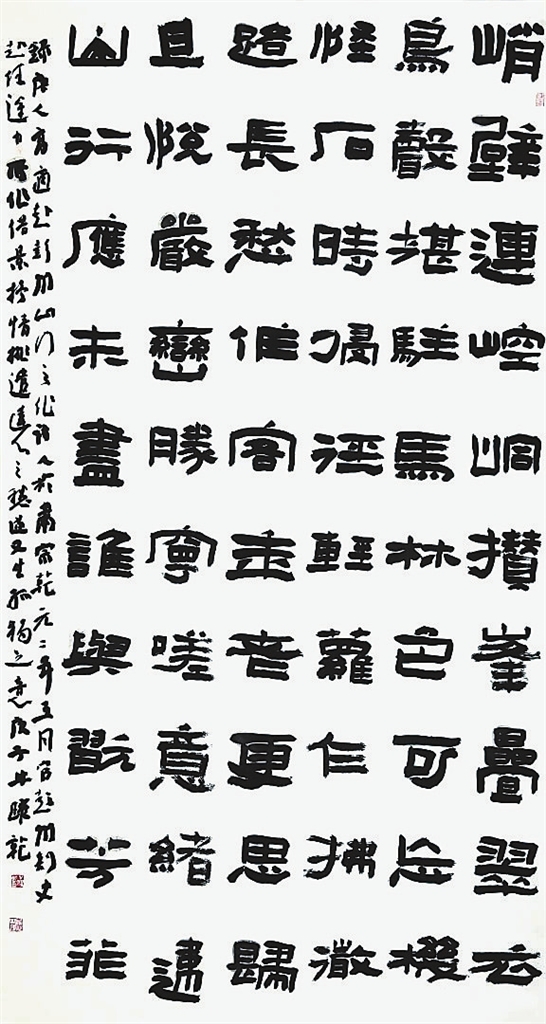 峭壁連崆峒攢峯疊翠衣
鳥聲堪駐馬林色可忘機
怪石時侵徑輕蘿乍拂微
路長愁作客年老更思歸
且悅嚴巒勝寧嗟意緒違
山行應未盡誰與翫芳菲
錄唐人高適赴彭州山行之作詩人於肅宗乾元二年五月官彭州刺史
赴任途中所作借景抒情排遣之又生孤獨之意庚子